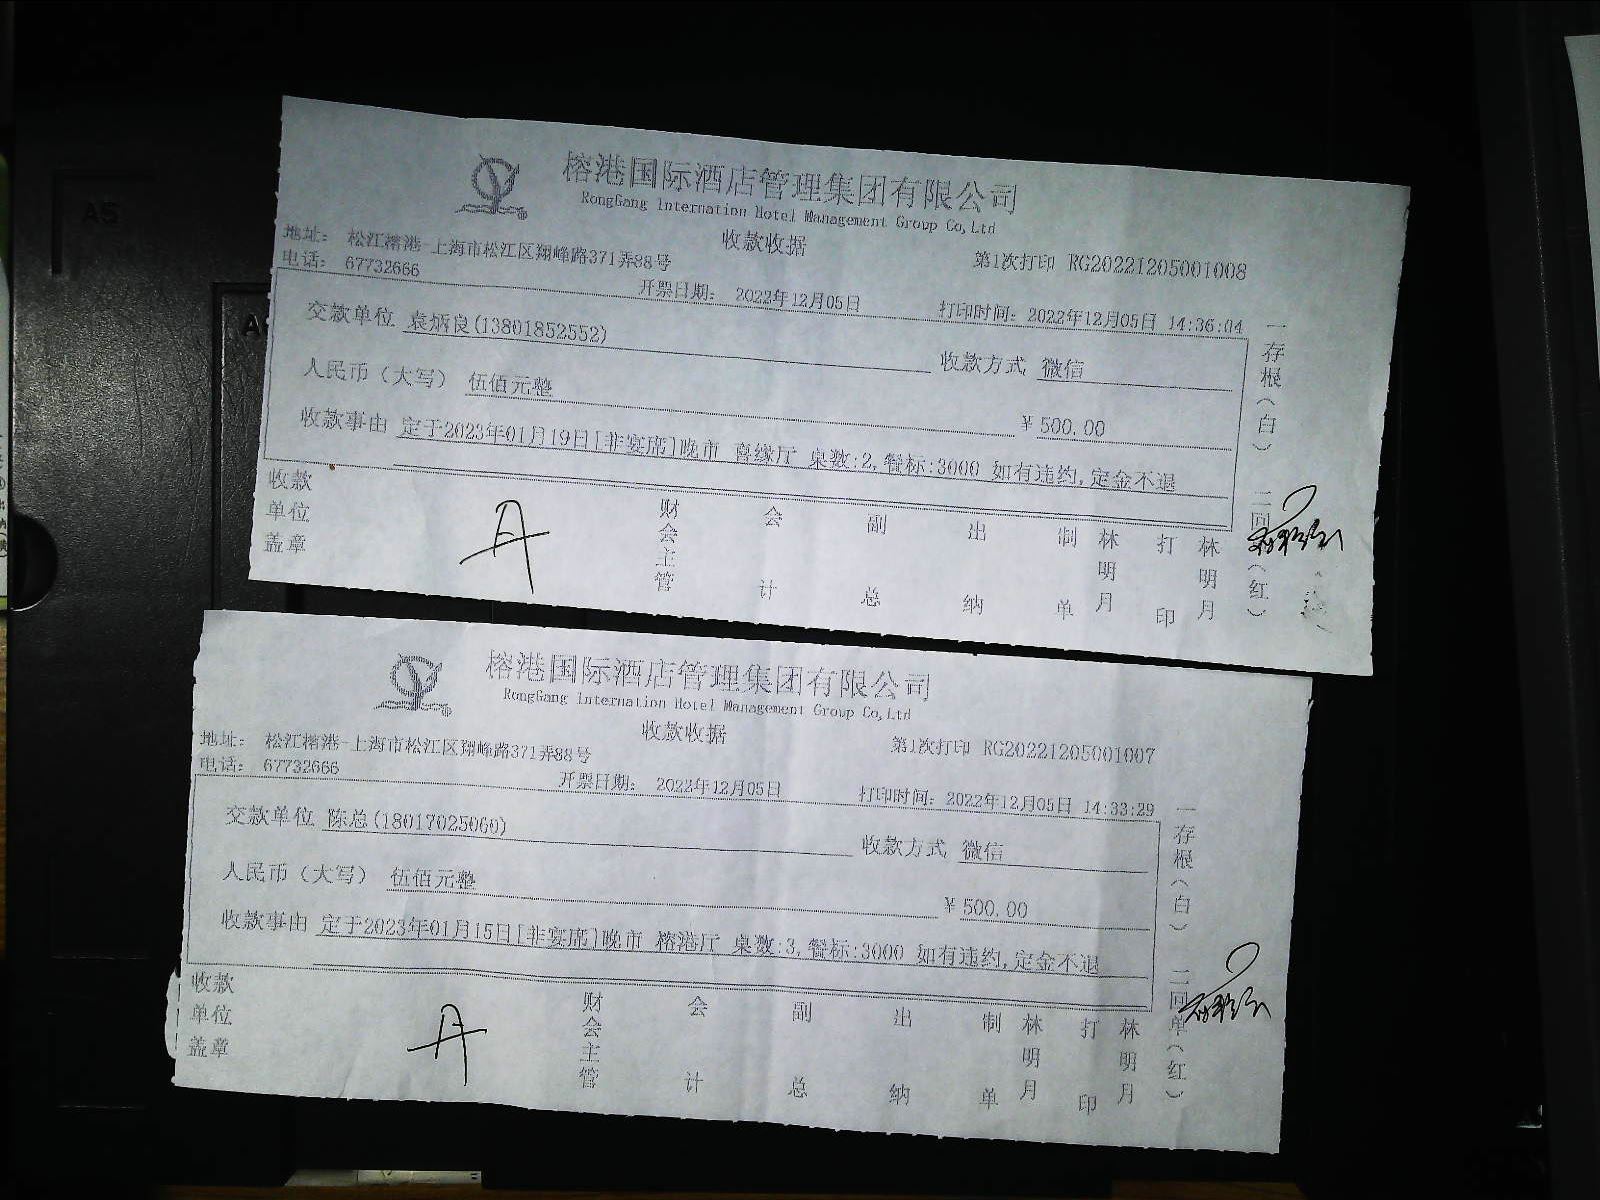 A5
榕港国际酒店管理集团有限公司
RongGang Internation Hotel Management Group Co,Ltd
收款收据
地址： 松江榕港-上海市松江区翔峰路371弄88号
第1次打印 RG20221205001008
电话： 67732666
开票日期： 2022年12月05日
打印时间：2022年12月05日 14:36:04
交款单位 袁炳良(13801852552)
收款方式 微信
人民币（大写） 伍佰元整
￥500.00
收款事由 定于2023年01月19日[非宴席]晚市 喜缘厅 桌数:2,餐标:3000 如有违约,定金不退
收款单位盖章
财会主管 会计 副总 出纳 制单 林明月 打印 林明月
一存根（白） 二回（红）
榕港国际酒店管理集团有限公司
RongGang Internation Hotel Management Group Co,Ltd
收款收据
地址： 松江榕港-上海市松江区翔峰路371弄88号
第1次打印 RG20221205001007
电话： 67732666
开票日期： 2022年12月05日
打印时间：2022年12月05日 14:33:29
交款单位 陈总(18017025060)
收款方式 微信
人民币（大写） 伍佰元整
￥500.00
收款事由 定于2023年01月15日[非宴席]晚市 榕港厅 桌数:3,餐标:3000 如有违约,定金不退
收款单位盖章
财会主管 会计 副总 出纳 制单 林明月 打印 林明月
一存根（白） 二回单（红）